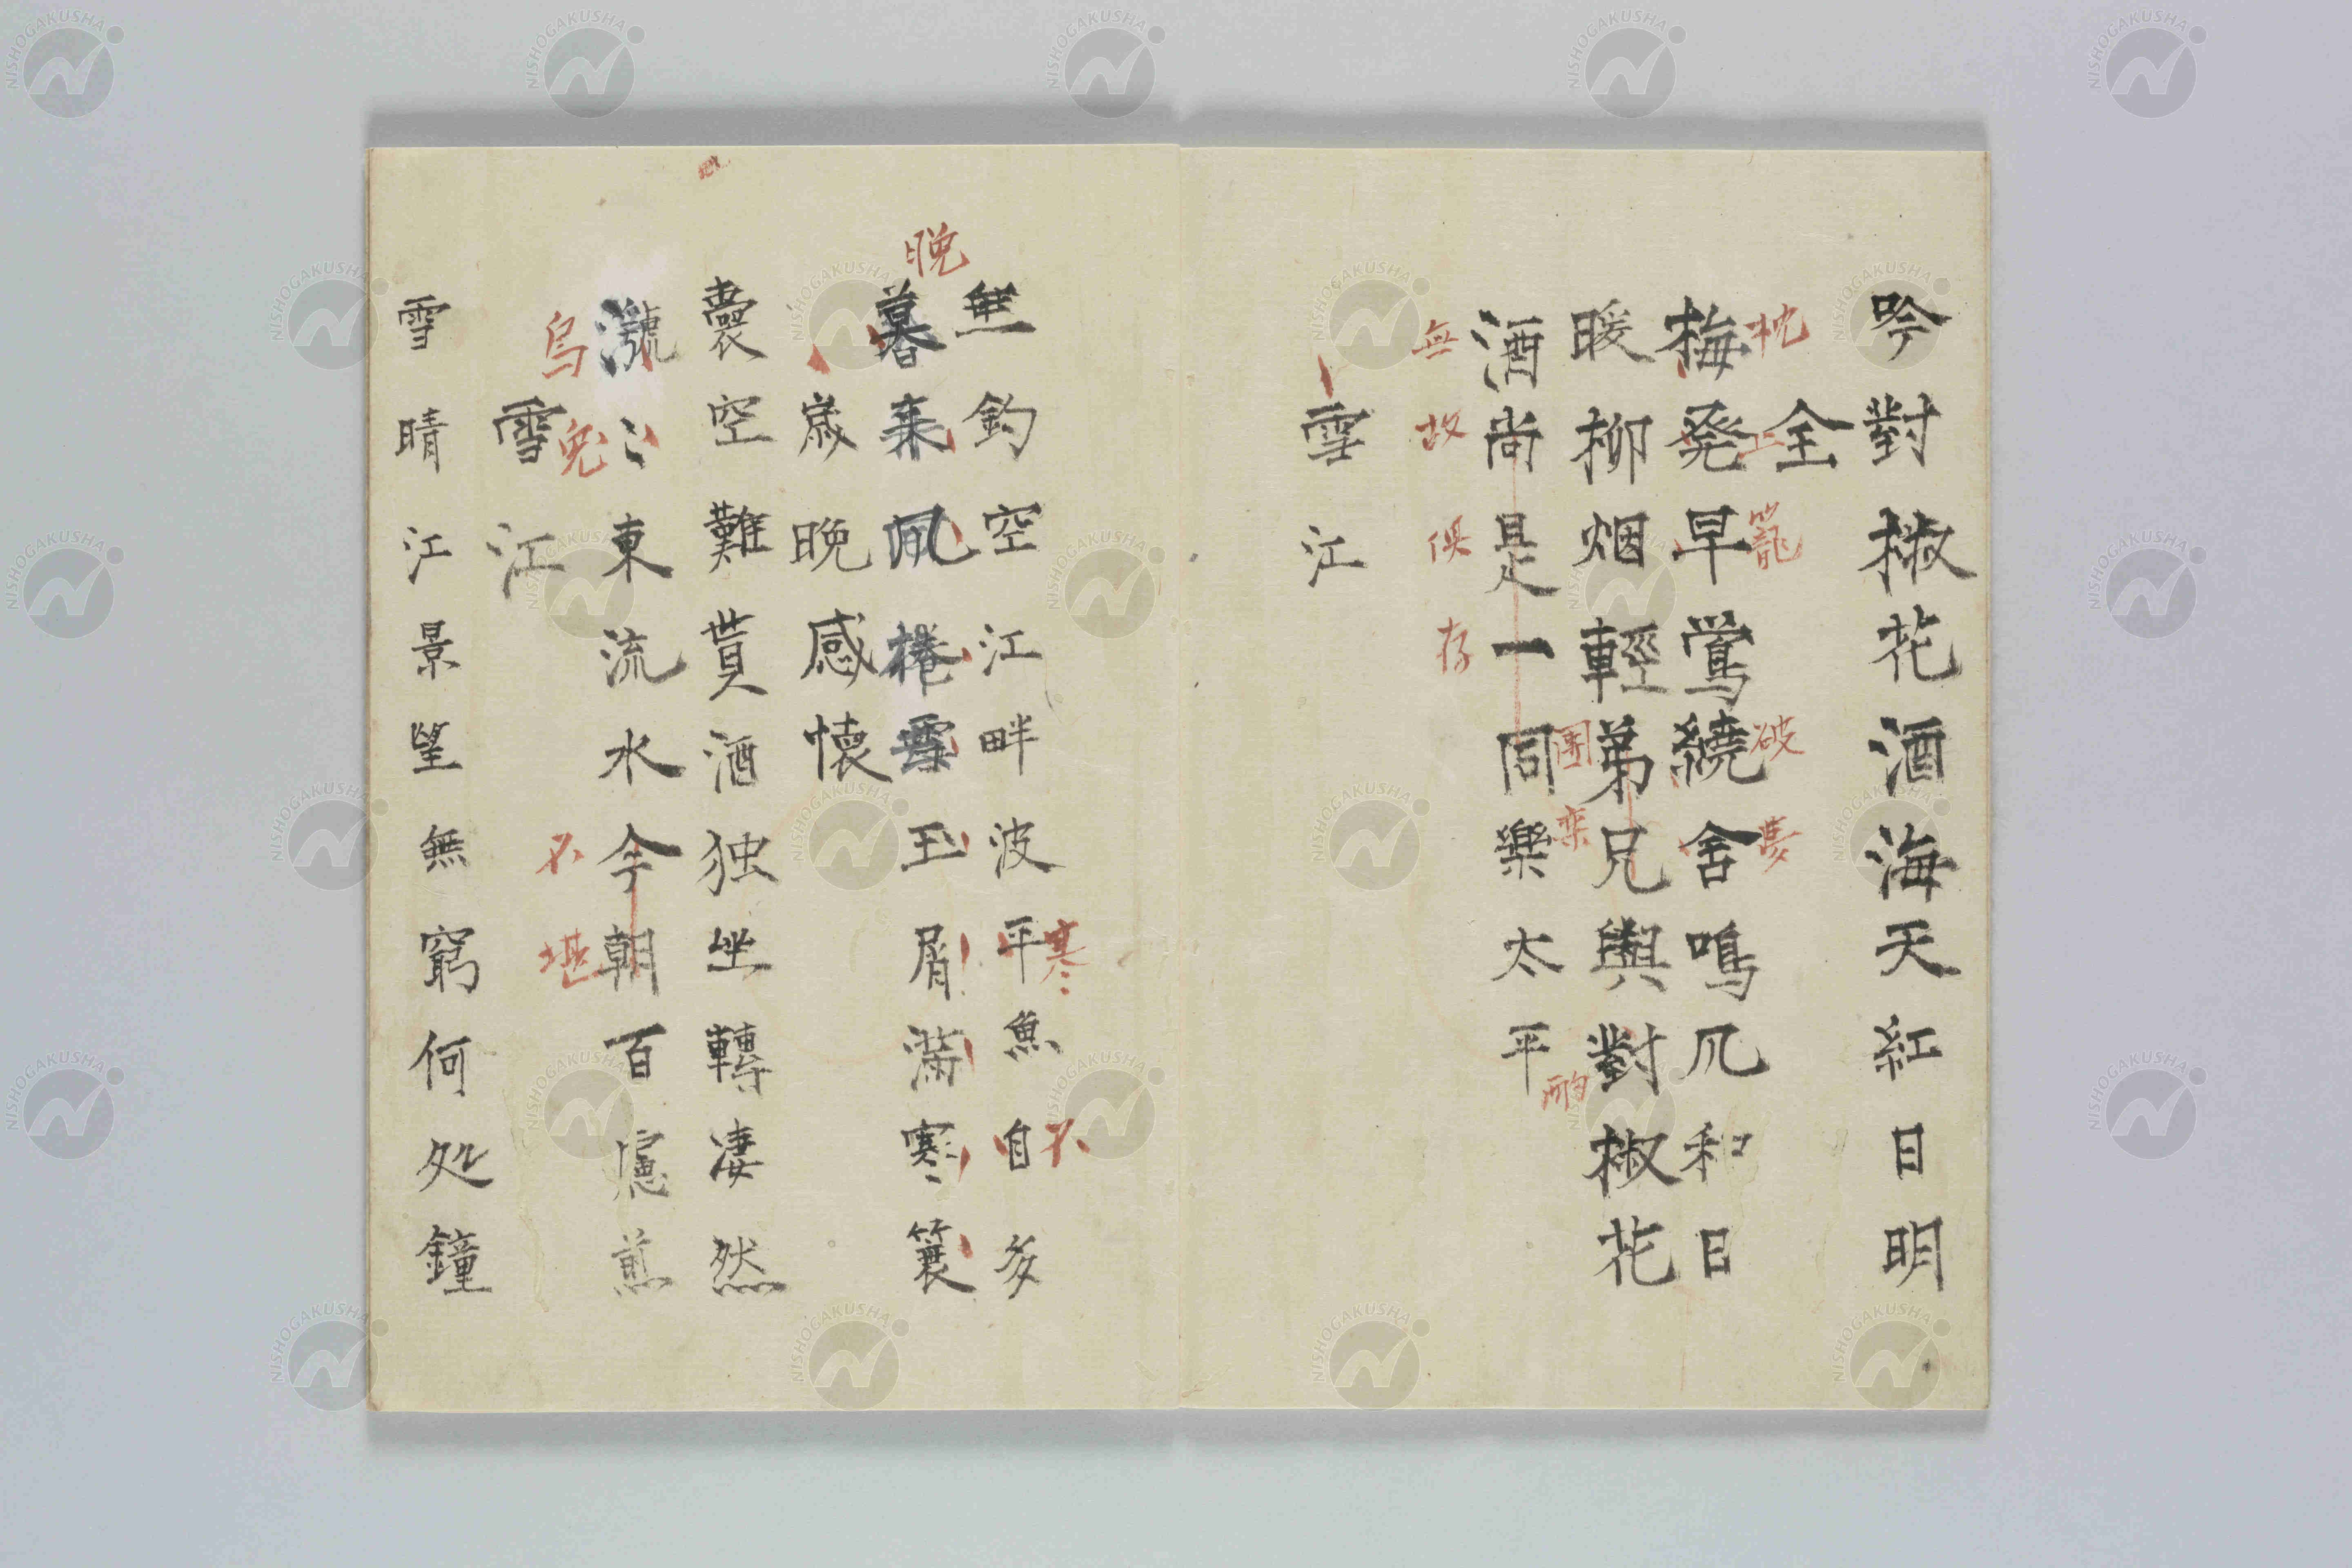 吟對椒花酒海天紅日明
全
枕上籠破夢
梅発早鶯繞舍鳴風和日
暖柳烟輕弟兄與對椒花
團欒酌
酒尚是一同樂太平
無故俱存
雪江
無釣空江畔波平魚自多
寒不
晩
暮来風捲雪玉屑滿寒簑
歳晩感懐
嚢空難貰酒独坐轉凄然
滾〻東流水今朝百慮煎
烏兔不堪
雪江
雪晴江景望無窮何処鐘
NISHOGAKUSHA